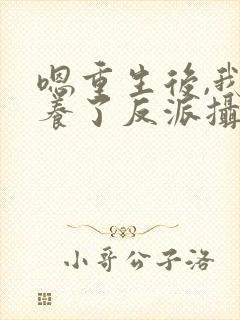 嗯重生後,我
養了反派攝
小哥公子洛